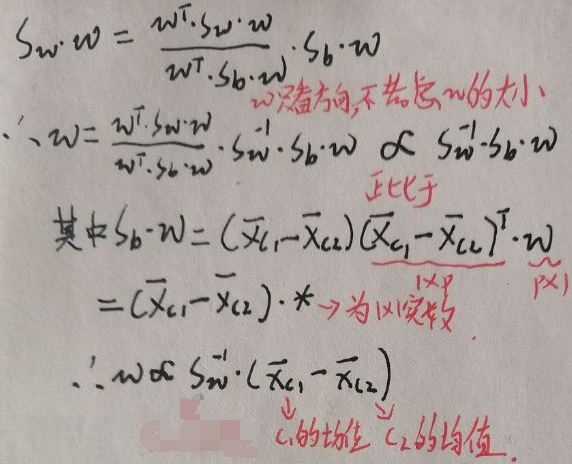 S_w·w = \frac{w^T·S_w·w}{w^T·S_b·w}·S_b·w
w只看方向,不考虑w的大小
∴w = \frac{w^T·S_w·w}{w^T·S_b·w}·S_w^{-1}·S_b·w ∝ S_w^{-1}·S_b·w
正比于
其中S_b·w = (\bar{X}_{C1}-\bar{X}_{C2})(\bar{X}_{C1}-\bar{X}_{C2})^T·w
1×p p×1
= (\bar{X}_{C1}-\bar{X}_{C2})·* →为1×1实数.
∴w∝S_w^{-1}·(\bar{X}_{C1}-\bar{X}_{C2})
C₁的均值 C₂的均值.